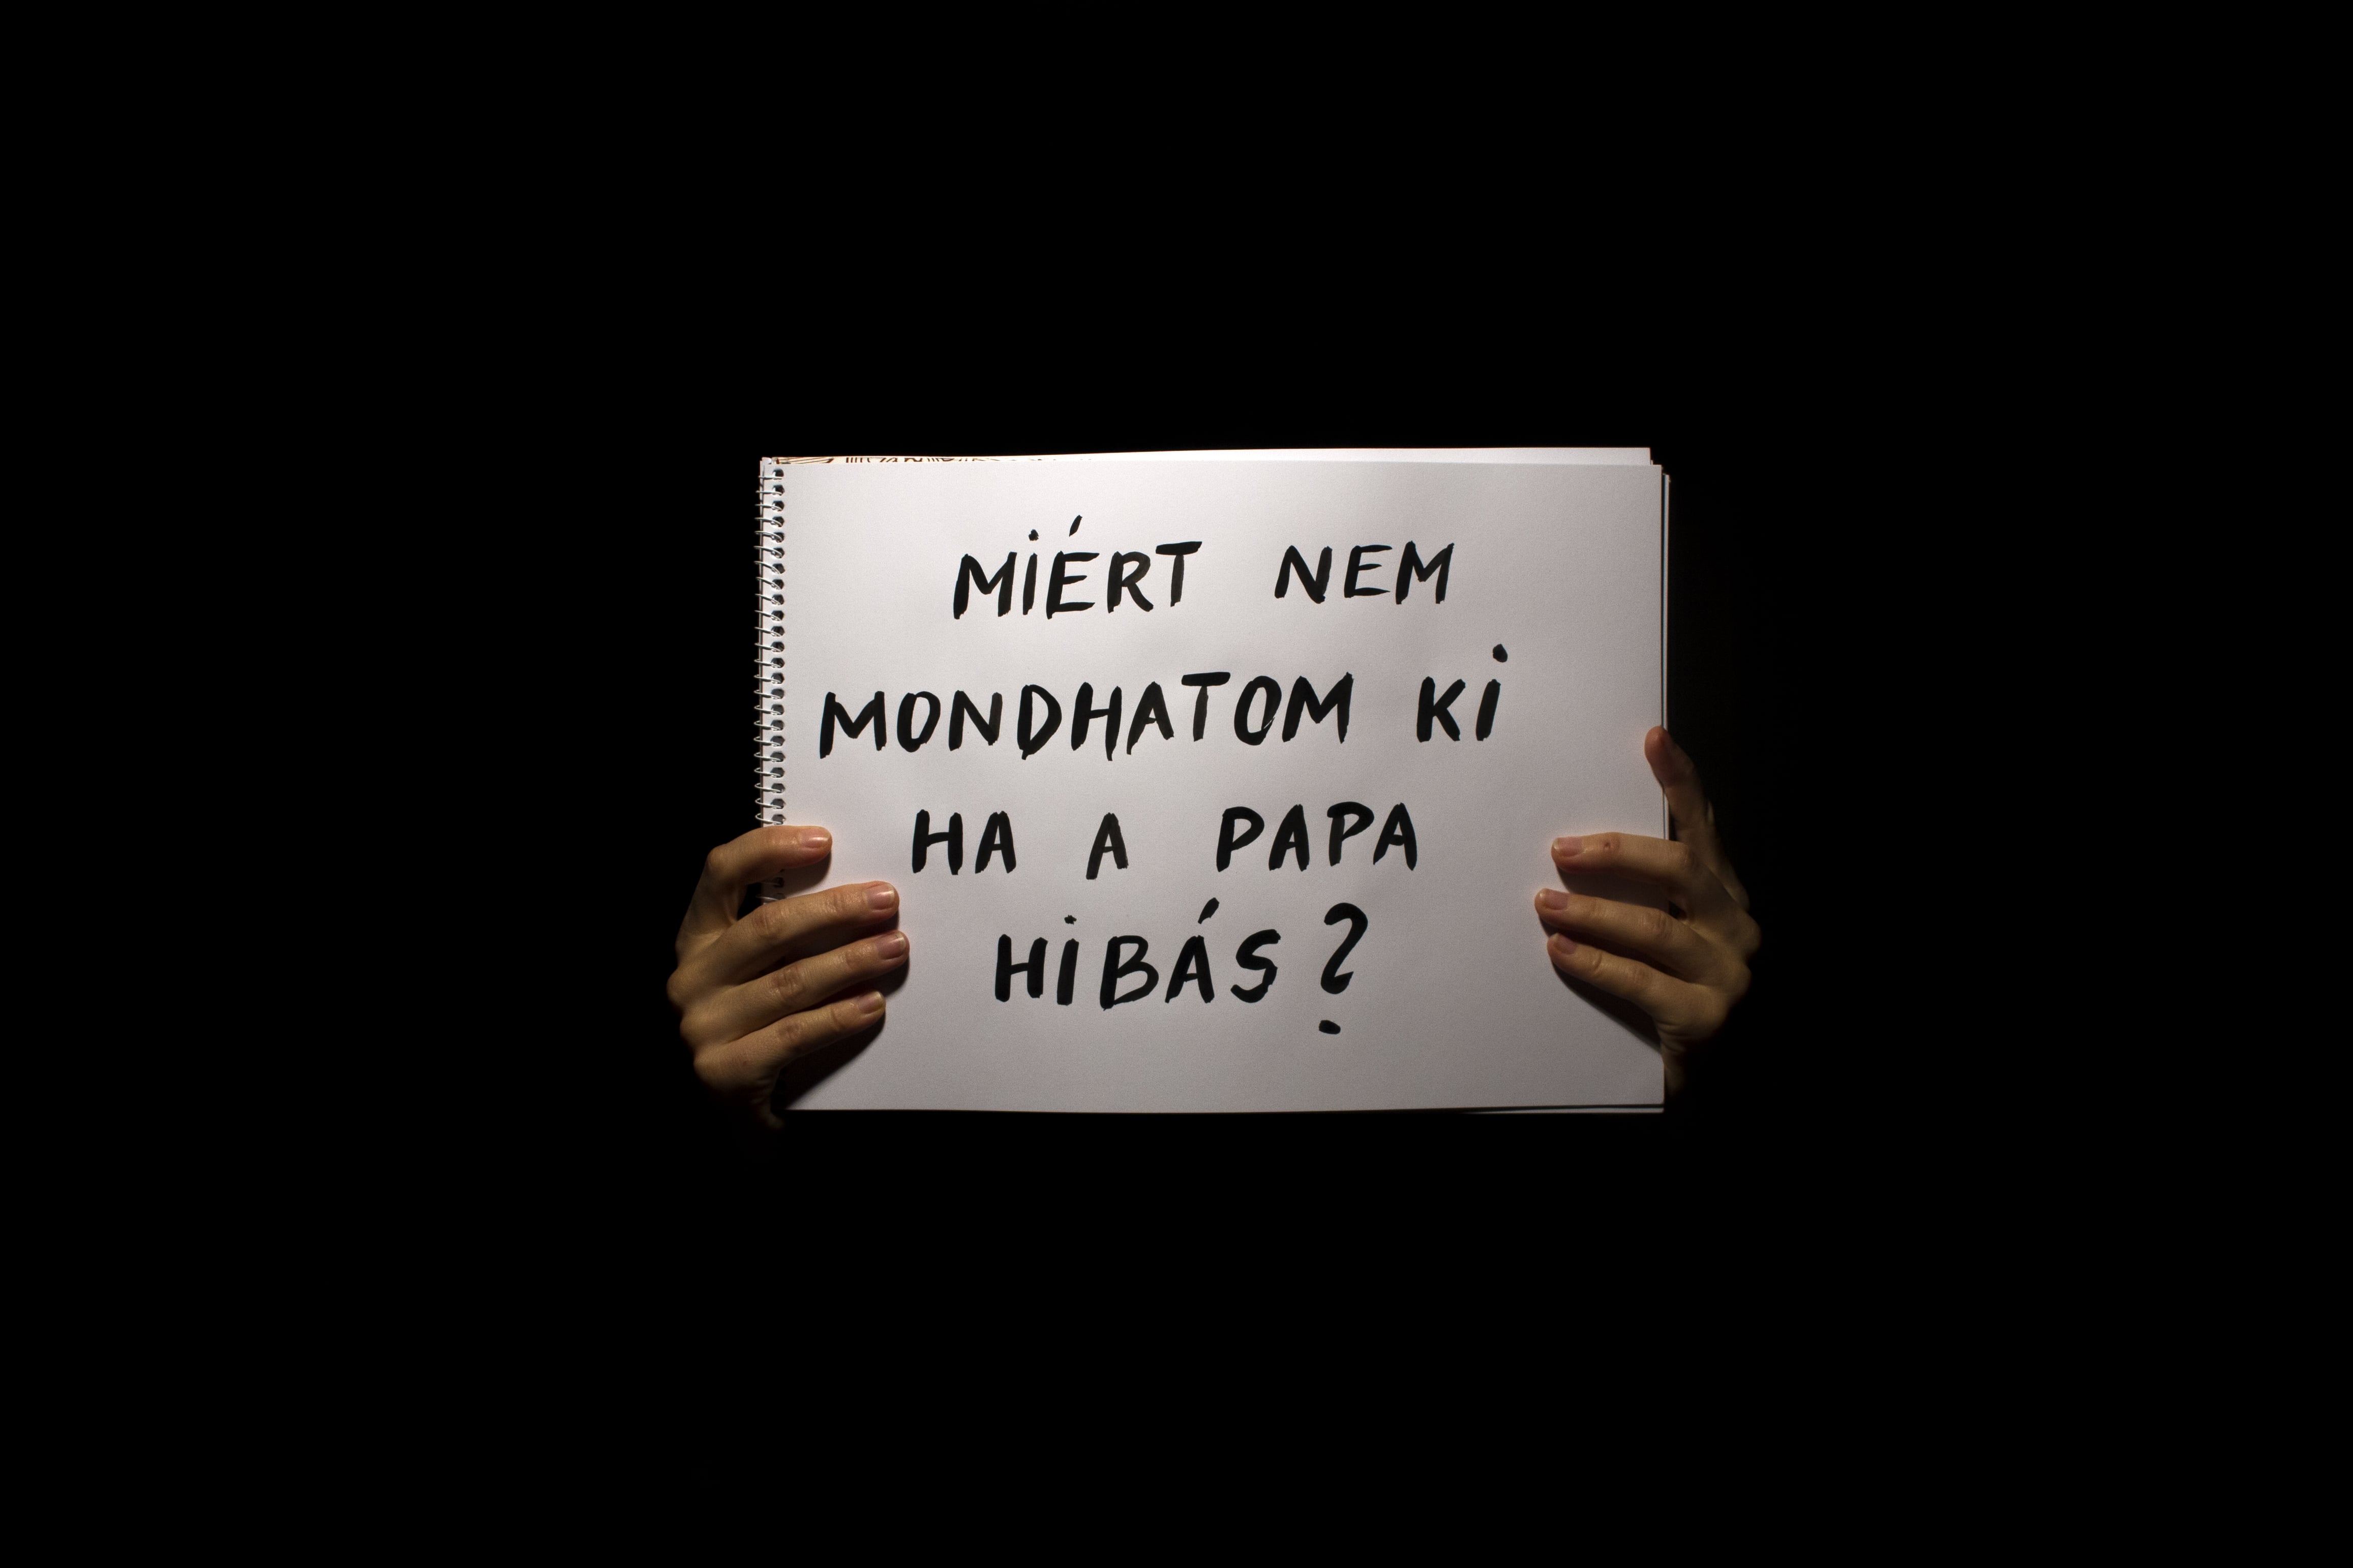 MIÉRT NEM
MONDHATOM KI
HA A PAPA
HIBÁS?